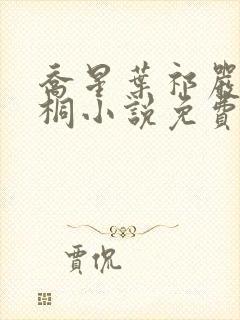 喬星葉祁嚴
桐小說免費
賈侃